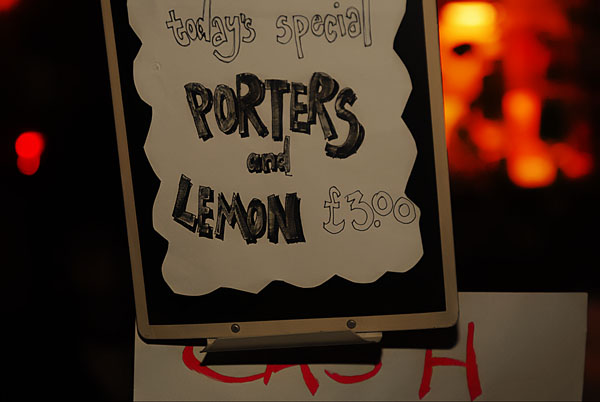 today's special
PORTERS
and
LEMON £3.00
CASH